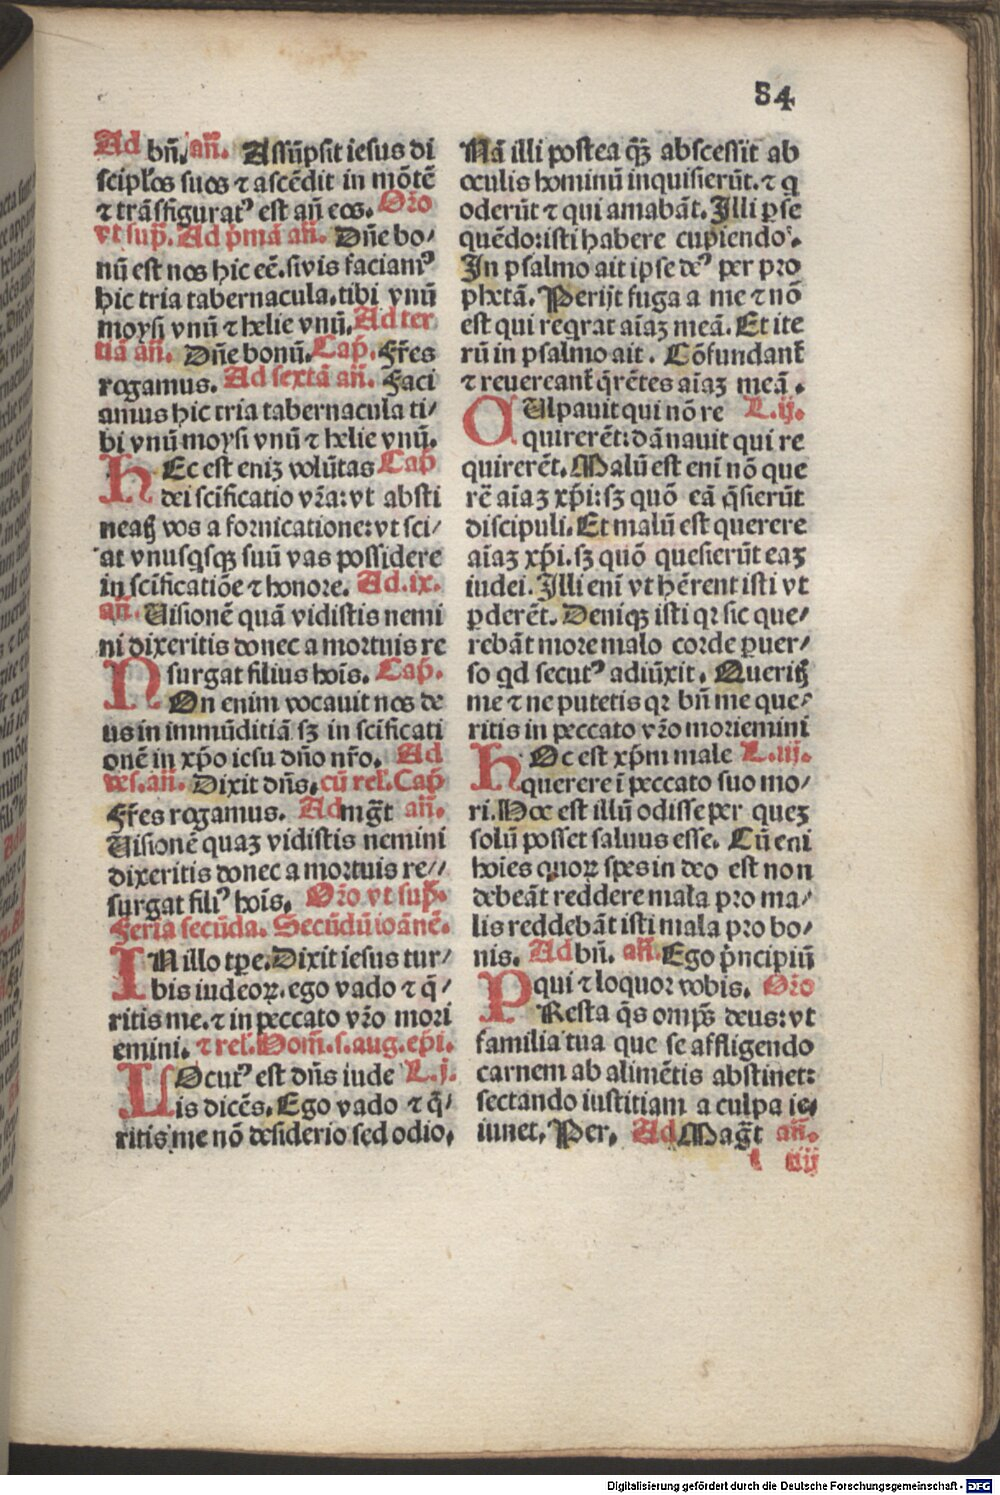 84
Ad bñ. añ. Assũpsit iesus di
sciplõs suos ⁊ ascẽdit in mõtẽ
⁊ trãsfigurat᾽ est añ eos. Oro
vt sup̃. Ad p̃mã añ. Dñe bo/
nũ est nos hic eẽ. si vis faciam᾽
hic tria tabernacula. tibi vnũ
moysi vnũ ⁊ helie vnũ. Ad ter
tiã añ. Dñe bonũ. Cap̃. Fr̃es
rogamus. Ad sextã añ. Faci
amus hic tria tabernacula ti/
bi vnũ moysi vnũ ⁊ helie vnũ.
HEc est eniʒ volũtas Cap̃
dei scificatio vr̃a: vt absti
neatꝭ vos a fornicatione: vt sci/
at vnusqsqʒ suũ vas possidere
in scificatiõe ⁊ honore. Ad .ix.
añ. Uisionẽ quã vidistis nemi
ni dixeritis donec a mortuis re
surgat filius hoĩs. Cap̃.
NOn enim vocauit nos de
us in immũditiã sʒ in scificati
onẽ in xp̃o iesu dño nr̃o. Ad
ves. añ. Dixit dñs. cũ rel̃. Cap̃
Fr̃es rogamus. Ad mg̃t añ.
Uisionẽ quaʒ vidistis nemini
dixeritis donec a mortuis re//
surgat fili᾽ hoĩs. Oro vt sup̃.
Feria secũda. Secũdũ ioãnẽ.
IN illo tp̃e. Dixit iesus tur/
bis iudeoꝝ. ego vado ⁊ q̃/
ritis me. ⁊ in peccato vr̃o mori
emini. ⁊ rel̃. Hom̃. s. aug. ep̃i.
LOcut᾽ est dñs iude L. j.
is dicẽs. Ego vado ⁊ q̃/
ritis me nõ desiderio sed odio.
Nã illi postea q̃ʒ abscessit ab
oculis hominũ inquisierũt. ⁊ q
oderũt ⁊ qui amabãt. Illi ꝑse
quẽdo: isti habere cupiendo.
In psalmo ait ipse de᾽ per pro
phetã. Perijt fuga a me ⁊ nõ
est qui reqrat aĩaʒ meã. Et ite
rũ in psalmo ait. Cõfundant᷑
⁊ reuereant᷑ q̃rẽtes aĩaʒ meã.
CUlpauit qui nõ re L. ij.
quirerẽt: dãnauit qui re
quirerẽt. Malũ est enĩ nõ que
rẽ aĩaʒ xp̃i: sʒ quõ eã q̃sierũt
discipuli. Et malũ est querere
aĩaʒ xp̃i. sʒ quõ quesierũt eaʒ
iudei. Illi enĩ vt hẽrent isti vt
ꝑderẽt. Deniqʒ isti qr sic que/
rebãt more malo corde ꝑuer/
so qd secut᾽ adiũxit. Queritꝭ
me ⁊ ne putetis qr bñ me que/
ritis in peccato vr̃o moriemini
HOc est xp̃m male L. iij.
querere ĩ peccato suo mo/
ri. Hoc est illũ odisse per queʒ
solũ posset saluus esse. Cũ eni
hoies quoꝝ spes in deo est non
debeãt reddere mala pro ma/
lis reddebãt isti mala pro bo/
nis. Ad bñ. añ. Ego p̃ncipiũ
qui ⁊ loquor vobis. Oro
PResta q̃s omp̃s deus: vt
familia tua que se affligendo
carnem ab alimẽtis abstinet:
sectando iustitiam a culpa ie/
iunet. Per. Ad Mag̃t añ.
l iij
Digitalisierung gefördert durch die Deutsche Forschungsgemeinschaft - DFG